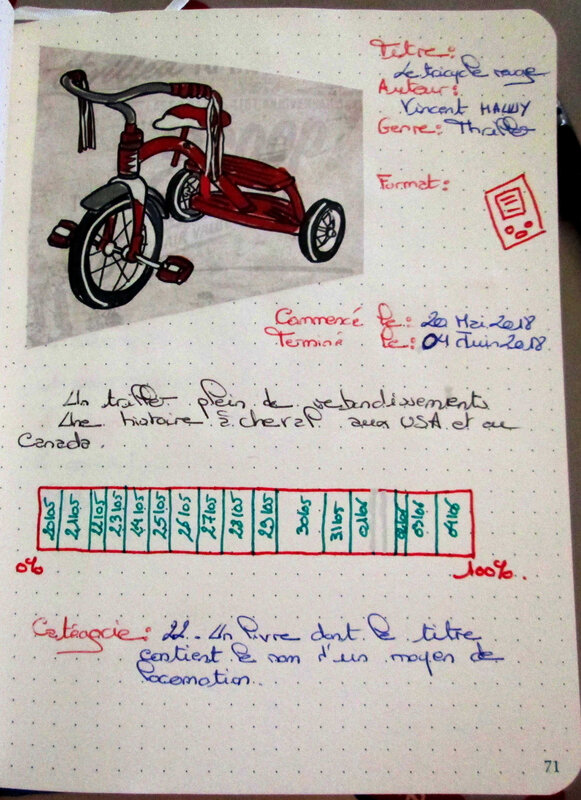 Titre:
Le tricycle rouge
Auteur:
Vincent HAUUY
Genre: Thriller
Format:
Commencé le: 20 Mai 2018
Terminé le: 04 Juin 2018
Un triller plein de rebondissements
Une histoire à cheval aux USA et au
Canada.
20/05 21/05 22/05 23/05 24/05 25/05 26/05 27/05 28/05 29/05 30/05 31/05 01/06 02/06 03/06 04/06
0% 100%
Catégorie: 22. Un livre dont le titre
contient le nom d'un moyen de
locomotion.
71